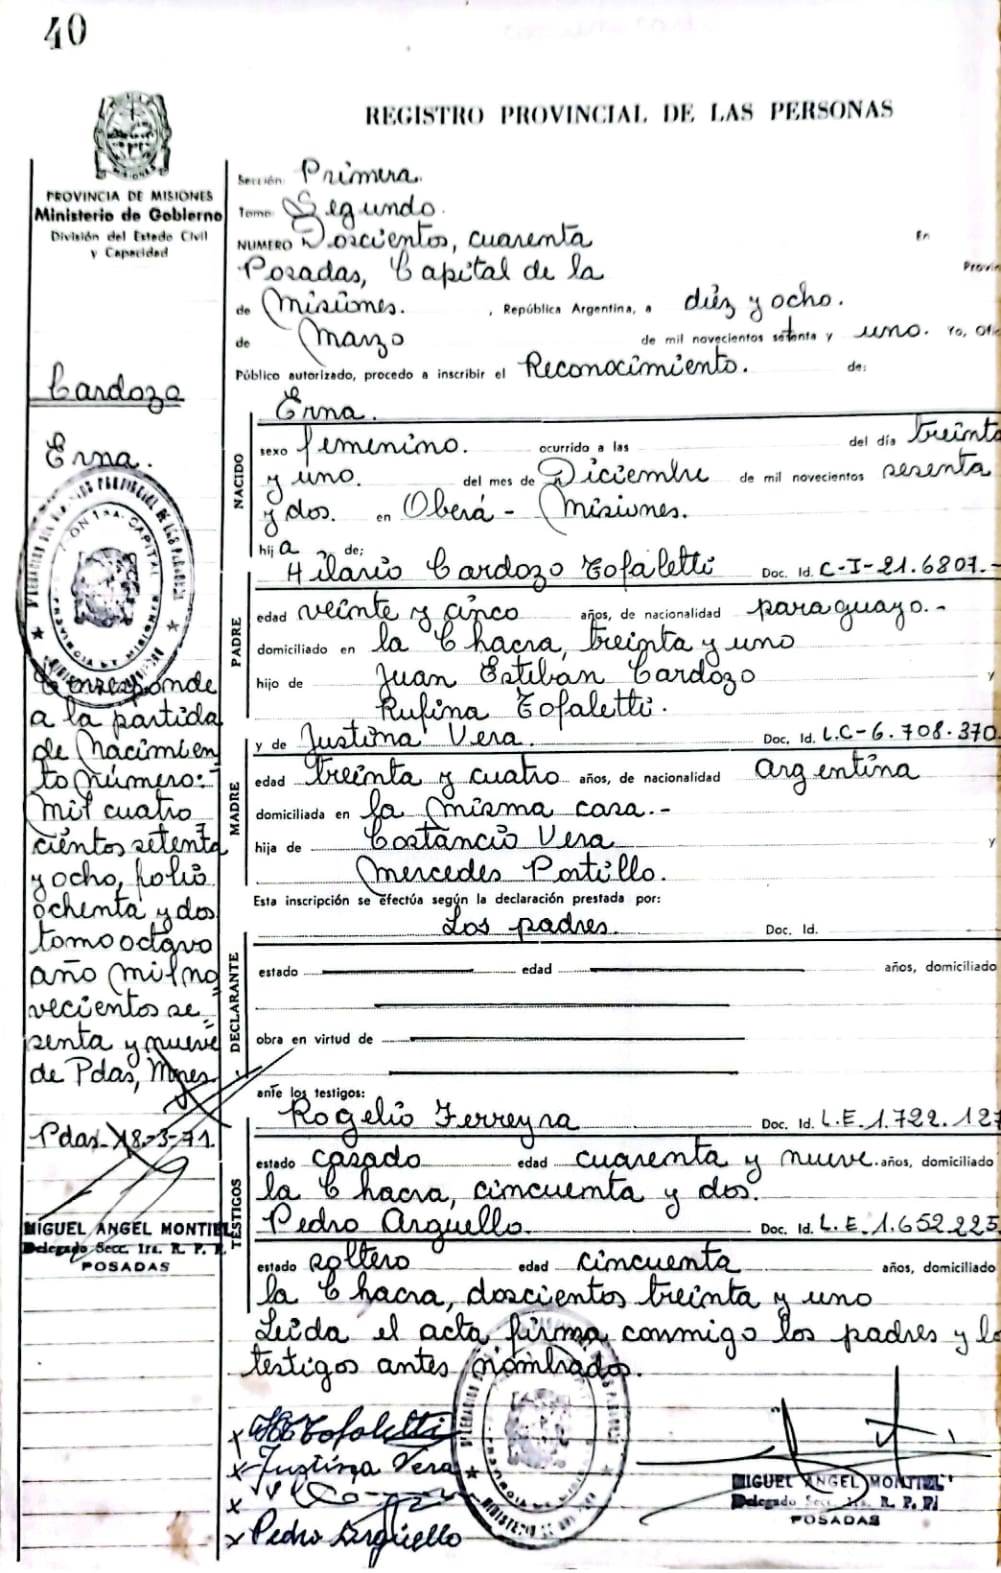 40
REGISTRO PROVINCIAL DE LAS PERSONAS
PROVINCIA DE MISIONES
Ministerio de Gobierno
División del Estado Civil
y Capacidad
Sección: Primera.
Tomo: Segundo.
NUMERO Doscientos, cuarenta En
Posadas, Capital de la Provin
de Misiones. , República Argentina, a diéz y ocho.
de Marzo de mil novecientos setenta y uno. Yo, Ofi
Público autorizado, procedo a inscribir el Reconocimiento. de:
Cardozo
Erna.
Corresponde
a la partida
de Nacimien
to número:
mil cuatro
cientos setenta
y ocho, folio
ochenta y dos
tomo octavo
año mil no
vecientos se=
senta y nueve
de Pdas, Mnes.
Pdas. 18-3-71.
MIGUEL ANGEL MONTIEL
Delegado Secc. 1ra. R. P. P.
POSADAS
NACIDO
Erna.
sexo femenino. ocurrido a las del día treinta
y uno. del mes de Diciembre de mil novecientos sesenta
y dos. en Oberá - Misiones.
hija de:
PADRE
Hilario Cardozo Tofaletti Doc. Id. C-I-21.6807.-
edad veinte y cinco años, de nacionalidad paraguayo.-
domiciliado en la Chacra, treinta y uno
hijo de Juan Esteban Cardozo y
Rufina Tofaletti.
MADRE
y de Justina Vera. Doc. Id. L.C-6.708.370.
edad treinta y cuatro años, de nacionalidad Argentina
domiciliada en la misma casa.-
hija de Costancio Vera y
Mercedes Portillo.
Esta inscripción se efectúa según la declaración prestada por:
DECLARANTE
Los padres. Doc. Id.
estado edad años, domiciliado
obra en virtud de
ante los testigos:
TESTIGOS
Rogelio Ferreyra Doc. Id. L.E.1.722.127
estado casado edad cuarenta y nueve. años, domiciliado
la Chacra, cincuenta y dos.
Pedro Argüello. Doc. Id. L.E.1.652.225
estado soltero edad cincuenta años, domiciliado
la Chacra, doscientos treinta y uno
Leída el acta, firma conmigo los padres y lo
testigos antes nombrados.
x Tofaletti
x Justina Vera
x
x Pedro Argüello
MIGUEL ANGEL MONTIEL
Delegado Secc. 1ra. R. P. P.
POSADAS